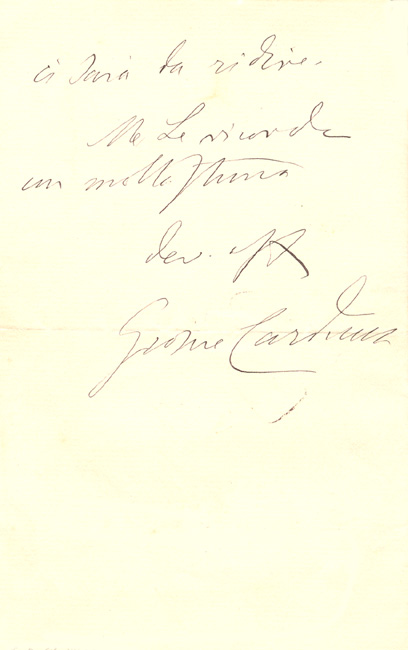 ci sarà da ridire.
Me Le ricordo
con molta stima
dev. aff
Giosue Carducci